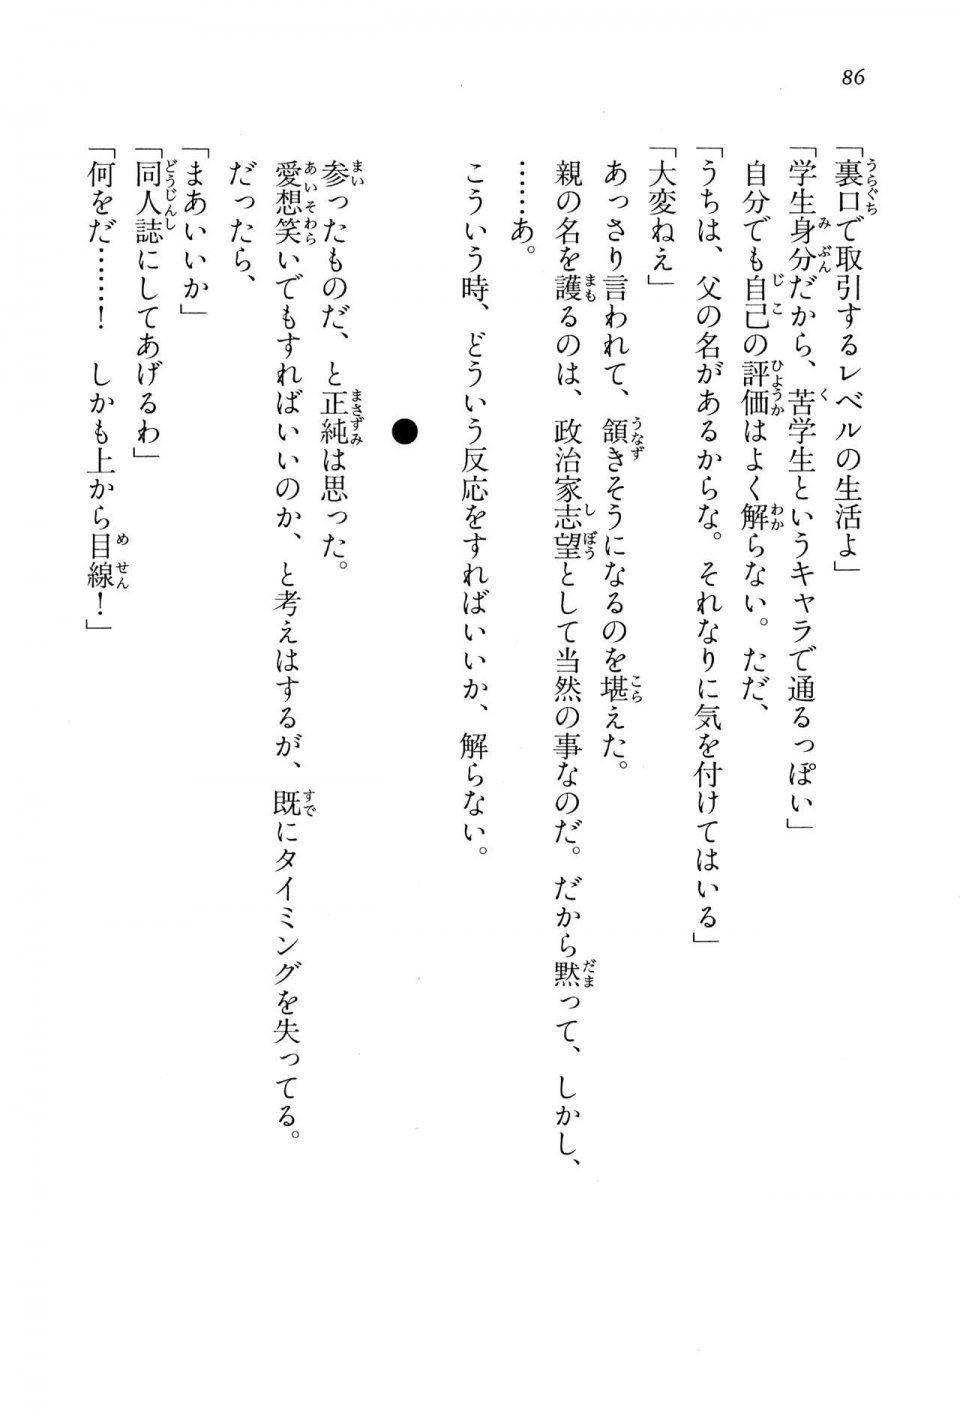 86
「裏口で取引するレベルの生活よ」
「学生身分だから、苦学生というキャラで通るっぽい」
自分でも自己の評価はよく解らない。ただ、
「うちは、父の名があるからな。それなりに気を付けてはいる」
「大変ねえ」
あっさり言われて、頷きそうになるのを堪えた。
親の名を護るのは、政治家志望として当然の事なのだ。だから黙って、しかし、
……あ。
こういう時、どういう反応をすればいいか、解らない。
●
参ったものだ、と正純は思った。
愛想笑いでもすればいいのか、と考えはするが、既にタイミングを失ってる。
だったら、
「まあいいか」
「同人誌にしてあげるわ」
「何をだ……！　しかも上から目線！」